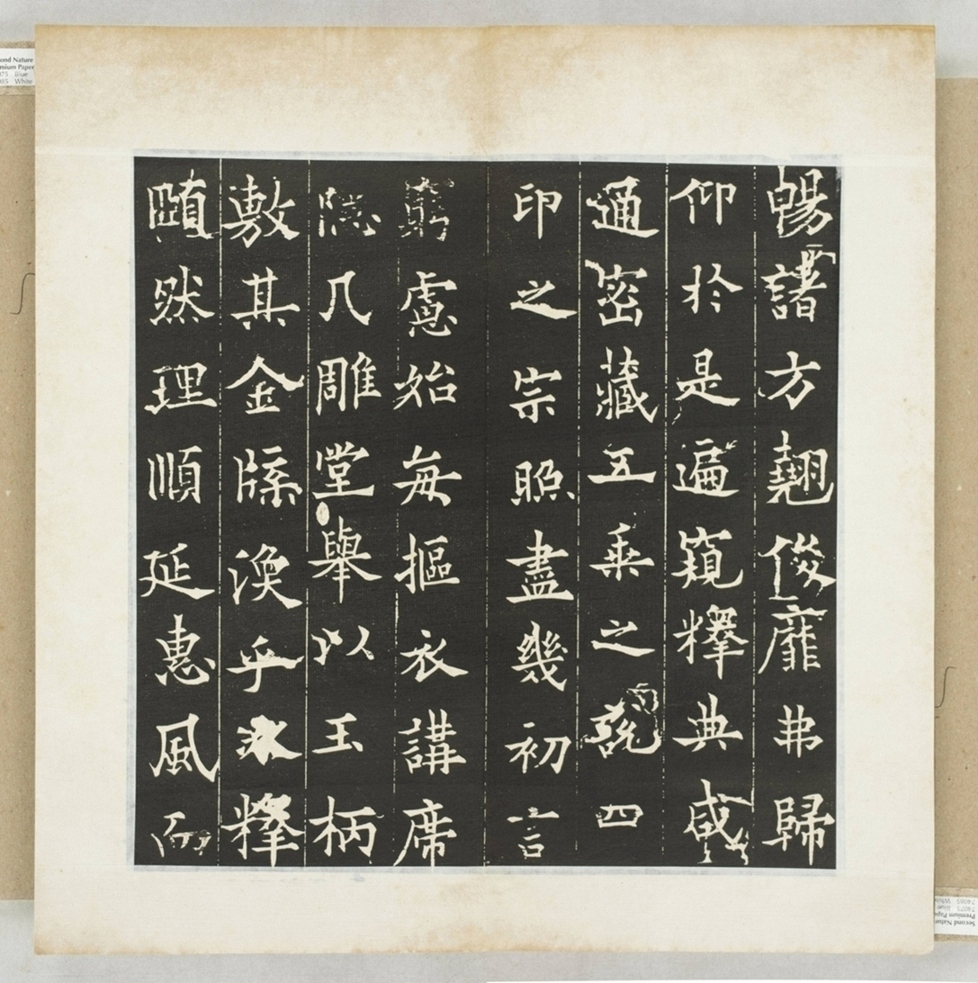 暢諸方翹俊靡弗歸
仰於是遍窺釋典咸
通密藏五乘之說四
印之宗照盡幾初言
窮慮始每摳衣講席
隱几雕堂舉以玉柄
敷其金牒渙乎冰釋
頤然理順延惠風而
Nature
Paper
Blue
White
Second Nature
Premium